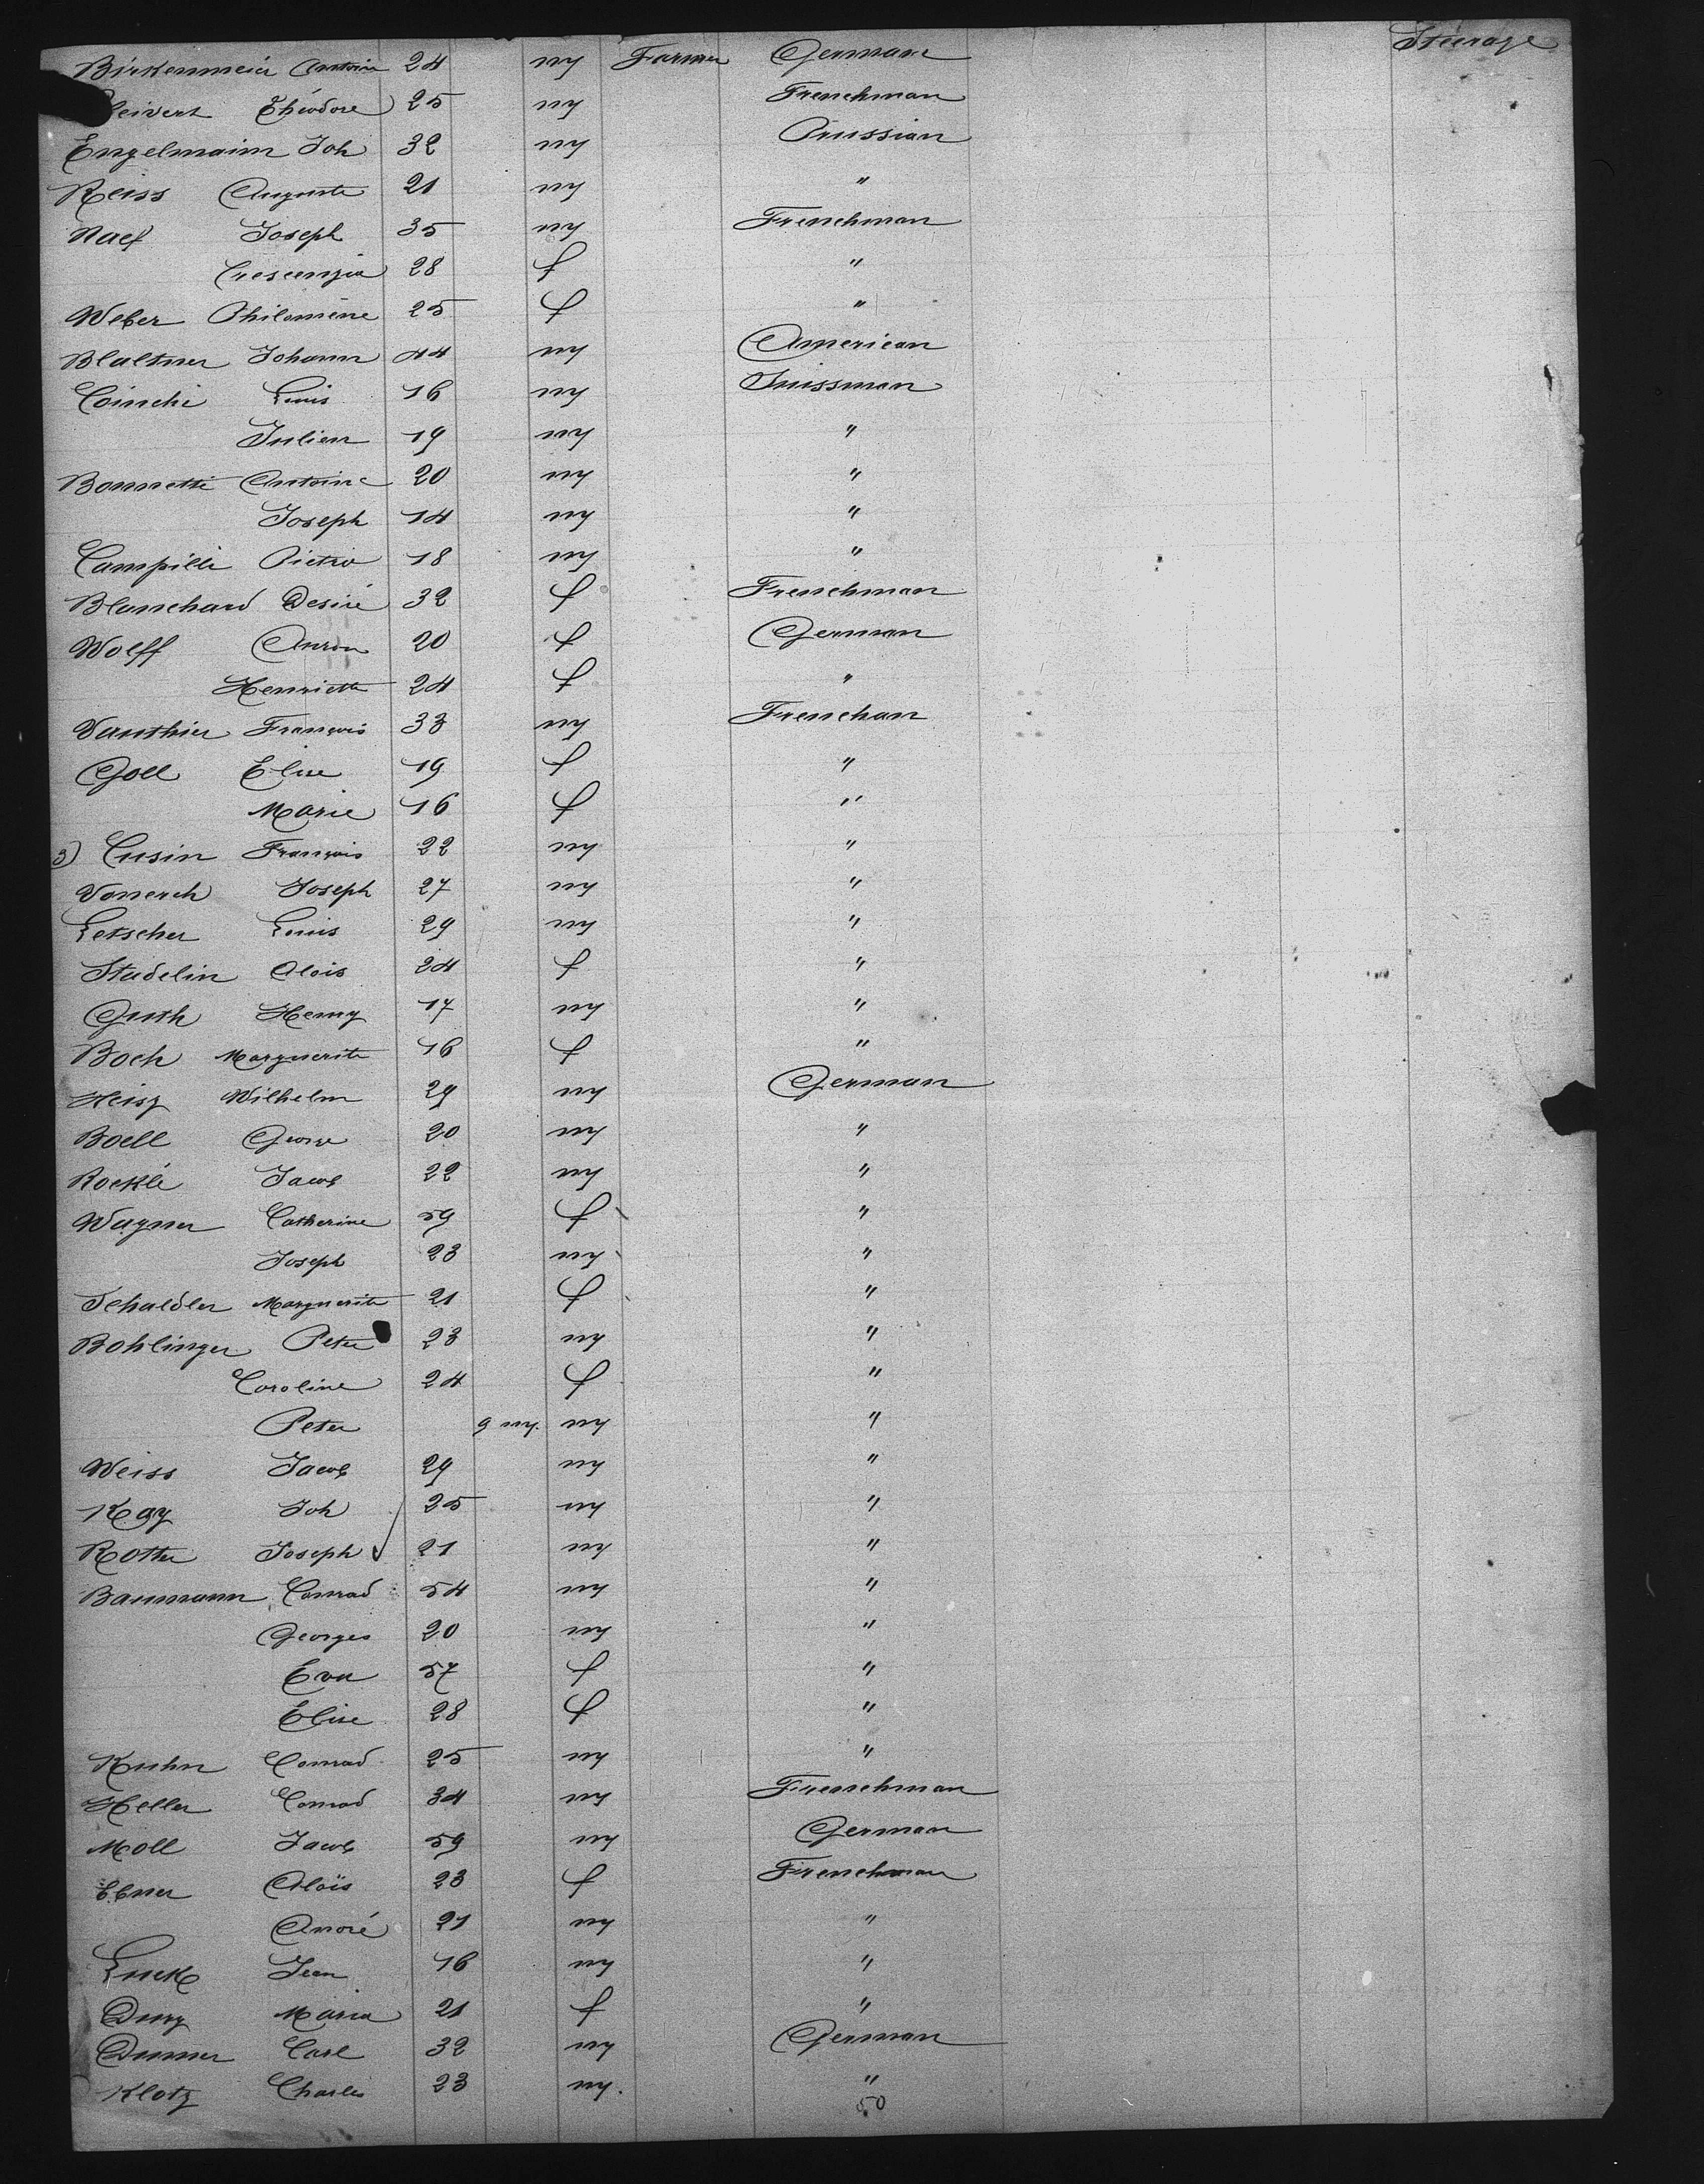 Steerage
Birkenmeier Antoine 24 m Farmer German
Théodore 25 m Frenchman
Engelmaim Joh 32 m Prussian
Reiss Auguste 21 m "
Naef Joseph 35 m Frenchman
Crescenzia 28 f "
Weber Philomène 25 f "
Blattner Johann 44 m American
Coinchi Louis 16 m Suissman
Julien 19 m "
Bonnetti Antoine 20 m "
Joseph 14 m "
Campilli Pietro 18 m "
Blanchard Desiré 32 f Frenchman
Wolff Auron 20 f German
Henriette 24 f "
Vauthier François 33 m Frenchan
Goll Elise 19 f "
Marie 16 f "
3) Cusin François 22 m "
Vonesch Joseph 27 m "
Letscher Louis 29 m "
Studelin Alois 24 f "
Guth Henry 17 m "
Boch Marguerite 16 f "
Heisz Wilhelm 29 m German
Boell George 20 m "
Rocklé Jacob 22 m "
Wagner Catherine 59 f "
Joseph 23 m "
Schaedler Marguerite 21 f "
Bohlinger Peter 23 m "
Caroline 24 f "
Peter 9 m. m "
Weiss Jacob 29 m "
Kay Joh 25 m "
Rotter Joseph 21 m "
Baumann Conrad 54 m "
Georges 20 m "
Eva 57 f "
Elise 28 f "
Kuhn Conrad 25 m "
Heller Conrad 34 m Frenschman
Moll Jacob 59 m German
Ebner Aloïs 23 f Frenchman
André 21 m "
Luck Jean 16 m "
Dury Maria 21 f "
Dumer Carl 32 m German
Klotz Charles 23 m. "
50